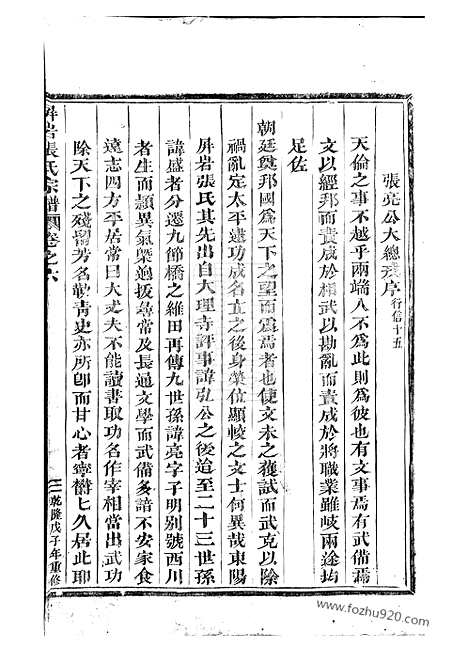 張亮公大總戎序行信十五
天倫之事不越乎兩端人不爲此則爲彼也有文事焉有武備焉
文以經邦而責成於相武以勘亂而責成於將職業雖岐兩途均
足佐
朝廷奠邦國爲天下之望而爲焉者也使文未之獲試而武克以除
禍亂定太平建功成名立之後身榮位顯較之文士何異哉東陽
屏岩張氏其先出自大理寺評事諱弘公之後迨至二十三世孫
諱盛者分遷九節橋之維田再傳九世孫諱亮字子明別號西川
者生而穎異氣槩逈拔尋常及長通文學而武備多諳不安家食
遠志四方平居常曰大丈夫不能讀書取功名作宰相當出武功
除天下之殘留芳名歡靑史亦所卽而甘心者寧欝七久居此耶
屏岩張氏宗譜卷之六
乾隆戊子年重修
www.fozhu920.com